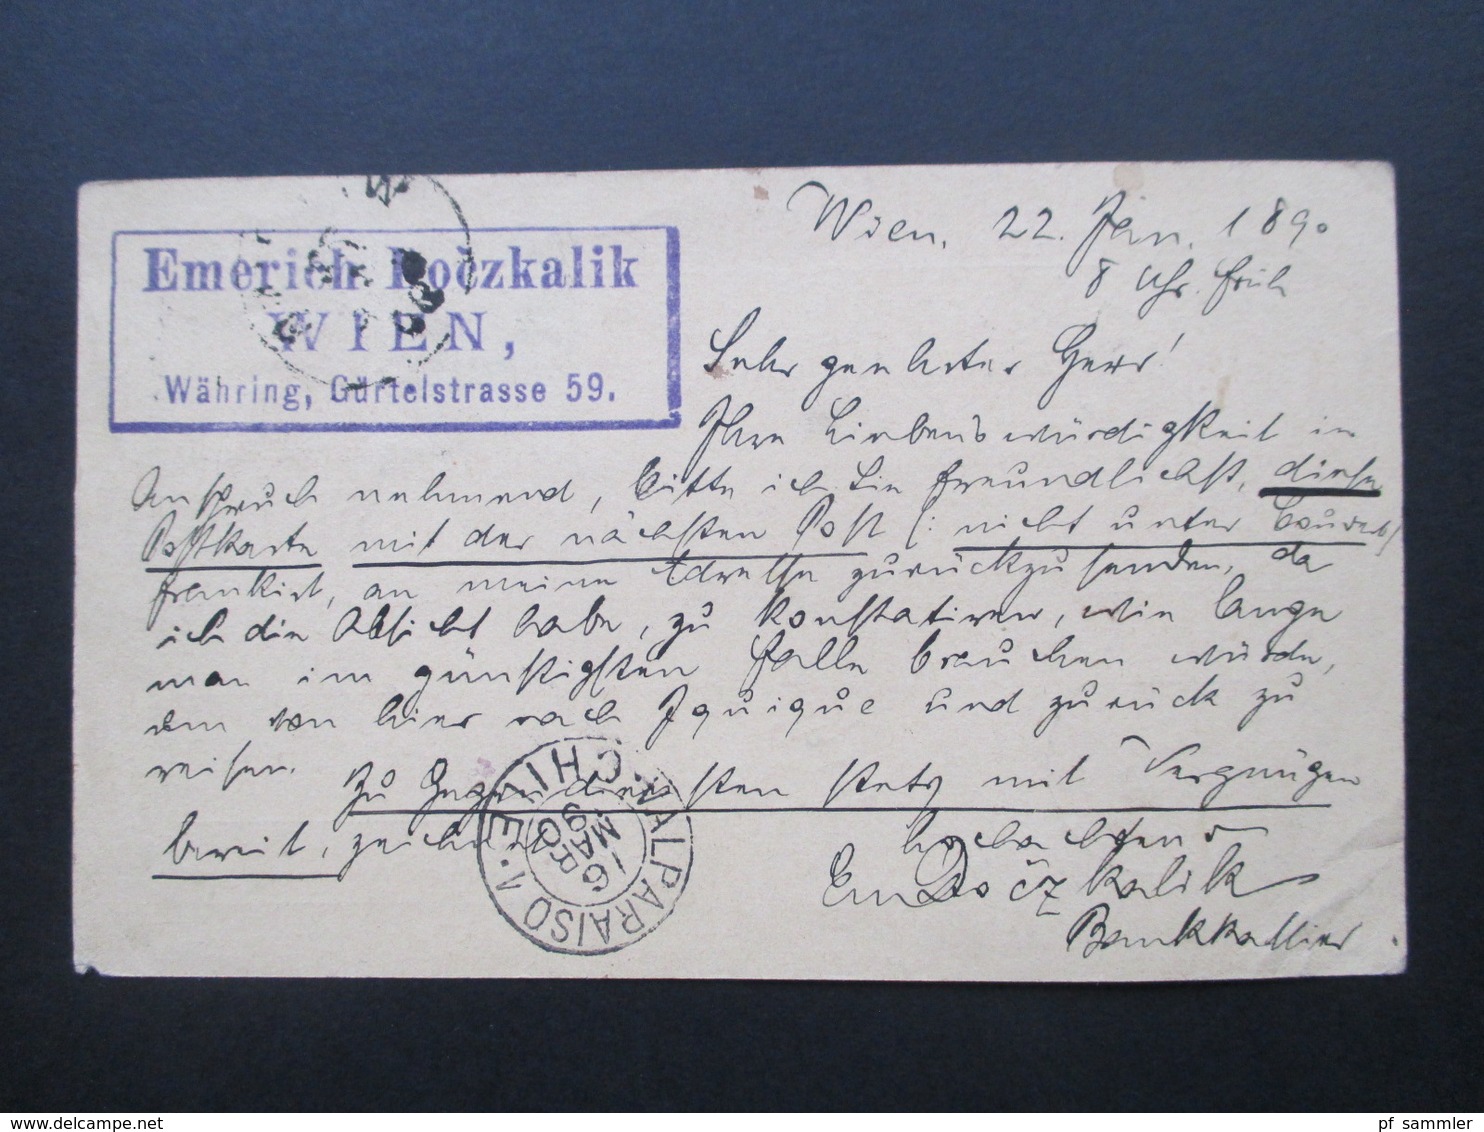 Emerich Dočzkalik
WIEN,
Währing, Gürtelstrasse 59.
Wien, 22. Jän. 1890
8 Uhr früh
Sehr geehrter Herr!
Ihre Liebenswürdigkeit in
Anspruch nehmend, bitte ich Sie freundlichst, diese
Postkarte mit der nächsten Post (: nicht unter Couvert
frankirt, an meine Adresse zurückzusenden, da
ich die Absicht habe, zu konstatiren, wie lange
man im günstigsten Falle brauchen würde,
um von hier nach Iquique und zurück zu
reisen. Zu Gegendiensten stets mit Vergnügen
bereit, zeichnet hochachtend
Em Dočzkalik
Bankkassier
VALPARAISO 1. CHILE
16
MAR
90
delcampe.net
pf_sammler